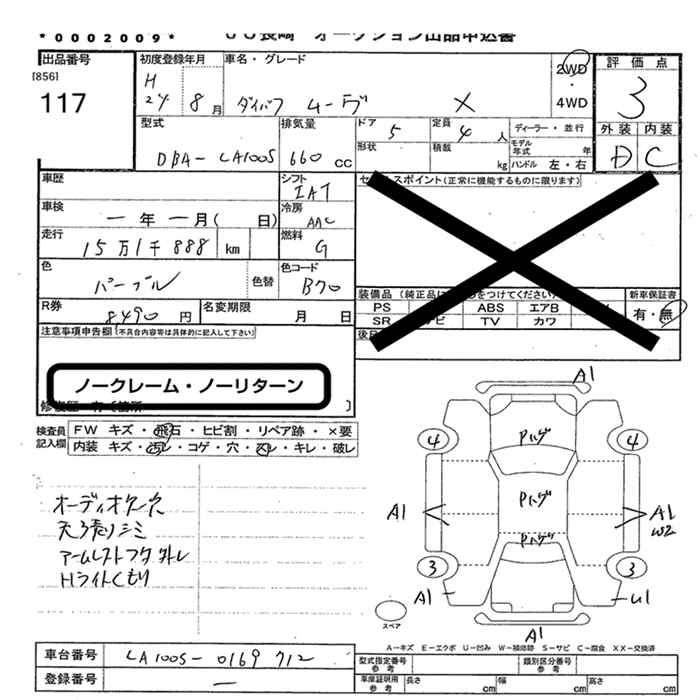 *0002009*
JU長崎 オークション出品申込書
出品番号
[856]
117
初度登録年月
H
24 8月
車名・グレード
ダイハツ ムーヴ X
2WD
・
4WD
評価点
3
外装 内装
D C
型式
DBA-LA100S
排気量
660 cc
ドア
5
定員
4 人
形状
積載
kg
ディーラー・並行
モデル年式 年
ハンドル 左・右
車歴
シフト
IAT
車検
一年一月( 日)
冷房
AAC
走行
15万1千888 km
燃料
G
色
パープル
色替
色コード
B70
R券
8490円
名変期限
月 日
セールスポイント(正常に機能するものに限ります)
装備品(純正品に
をつけてください)
PS ABS エアB
SR ナビ TV カワ
新車保証書
有・無
後日
注意事項申告欄(不具合内容等は具体的に記入して下さい)
ノークレーム・ノーリターン
修復歴 有(箇所 )
検査員記入欄
FW キズ・飛石・ヒビ割・リペア跡・×要
内装 キズ・汚レ・コゲ・穴・スレ・キレ・破レ
オーディオ欠 穴
天張りシミ
アームレストフタ外レ
Hライトくもり
A1
4 4
Pハゲ
Pハゲ
Pハゲ
A1
A1
W2
3 3
A1
U1
A1
スペア
A-キズ E-エクボ U-凹み W-補修跡 S-サビ C-腐食 XX-交換済
車台番号 LA100S-0169712
登録番号 ー
型式指定番号
参考
類別区分番号
参考
車庫証明用
参考
長さ cm 幅 cm 高さ cm